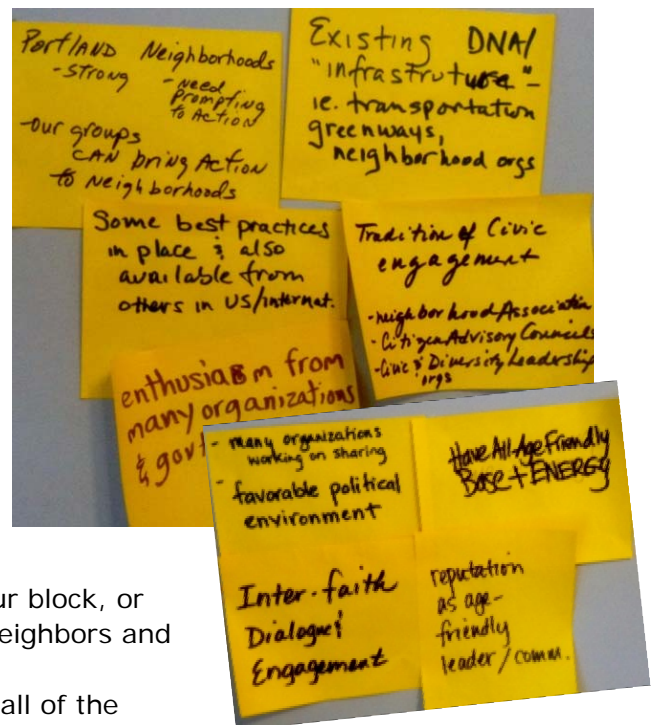 Portland Neighborhoods
- Strong - need
prompting
to Action
- our groups
CAN bring Action
to Neighborhoods
Existing DNA/
"infrastruture" -
ie. transportation
greenways,
neighborhood orgs
Some best practices
in place & also
available from
others in US/internat.
Tradition of Civic
engagement
- Neighborhood Association
- Citizen Advisory Councils
- Civic & Diversity Leadership
orgs
enthusiasm from
many organizations
& govt
- many organizations
working on sharing
- favorable political
environment
Have All Age Friendly
Base + ENERGY
Inter-faith
Dialogue &
Engagement
reputation
as age-
friendly
leader/comm.
ur block, or
eighbors and
all of the